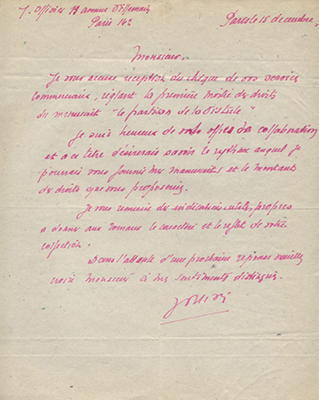 J. Ollivier 11 avenue
Paris 14e
Paris le 15 décembre
Monsieur,
Je vous accuse réception du chèque de vos services
commerciaux, réglant la première moitié des droits
du manuscrit "le partisan de la Bastille"
Je suis heureux de votre offre de collaboration
et à ce titre aimerais savoir le rythme auquel je
pourrais vous fournir des manuscrits et le montant
des droits que vous proposeriez.
Je vous remercie des indications utiles, propres
à donner aux romans le caractère et le reflet de votre
collection.
Dans l'attente d'une prochaine réponse veuillez
croire Monsieur à mes sentiments distingués.